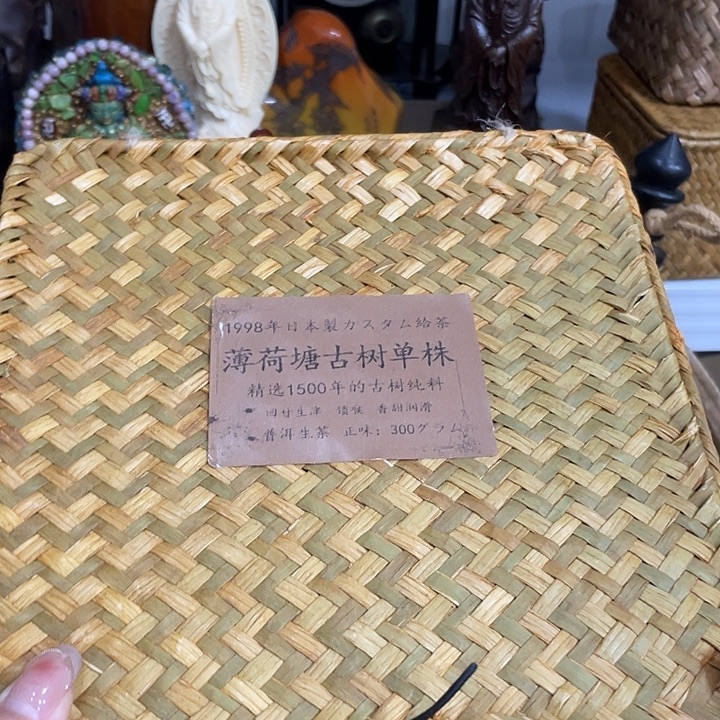 1998年日本製カスタム给茶
薄荷塘古树单株
精选1500年的古树纯料
回甘生津 锁喉 香甜润滑
普洱生茶 正味：300グラム